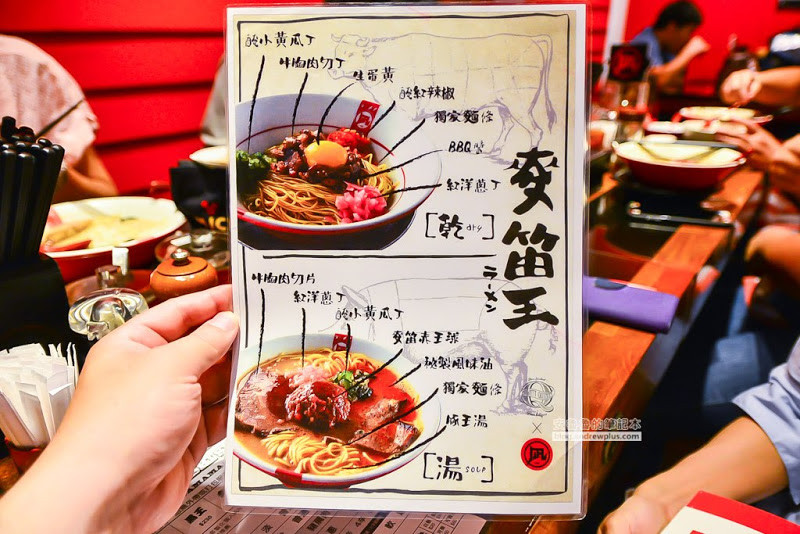 醃小黃瓜丁
牛胸肉切丁
生蛋黃
醃紅辣椒
獨家麵條
BBQ醬
紅洋蔥丁
[乾 dry]
麥笛王
ラーメン
牛胸肉切片
紅洋蔥丁
醃小黃瓜丁
麥笛赤王球
秘製風味油
獨家麵條
豚王湯
[湯 SOUP]
×
凪
的筆記本
blog.andrewplus.com